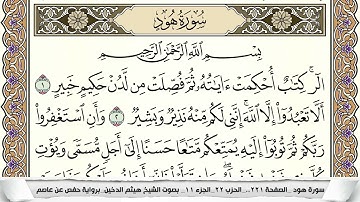 سُورَةُ هُودٍ
بِسْمِ اللَّهِ الرَّحْمَٰنِ الرَّحِيمِ
الٓر ۚ كِتَٰبٌ أُحْكِمَتْ ءَايَٰتُهُۥ ثُمَّ فُصِّلَتْ مِن لَّدُنْ حَكِيمٍ خَبِيرٍ ١
أَلَّا تَعْبُدُوٓا۟ إِلَّا ٱللَّهَ ۚ إِنَّنِى لَكُم مِّنْهُ نَذِيرٌ وَبَشِيرٌ ٢ وَأَنِ ٱسْتَغْفِرُوا۟
رَبَّكُمْ ثُمَّ تُوبُوٓا۟ إِلَيْهِ يُمَتِّعْكُم مَّتَٰعًا حَسَنًا إِلَىٰٓ أَجَلٍ مُّسَمًّى وَيُؤْتِ
سورة هود _ الصفحة ٢٢١ _ الحزب ٢٢ _ الجزء ١١ _ بصوت الشيخ هيثم الدخين _ برواية حفص عن عاصم